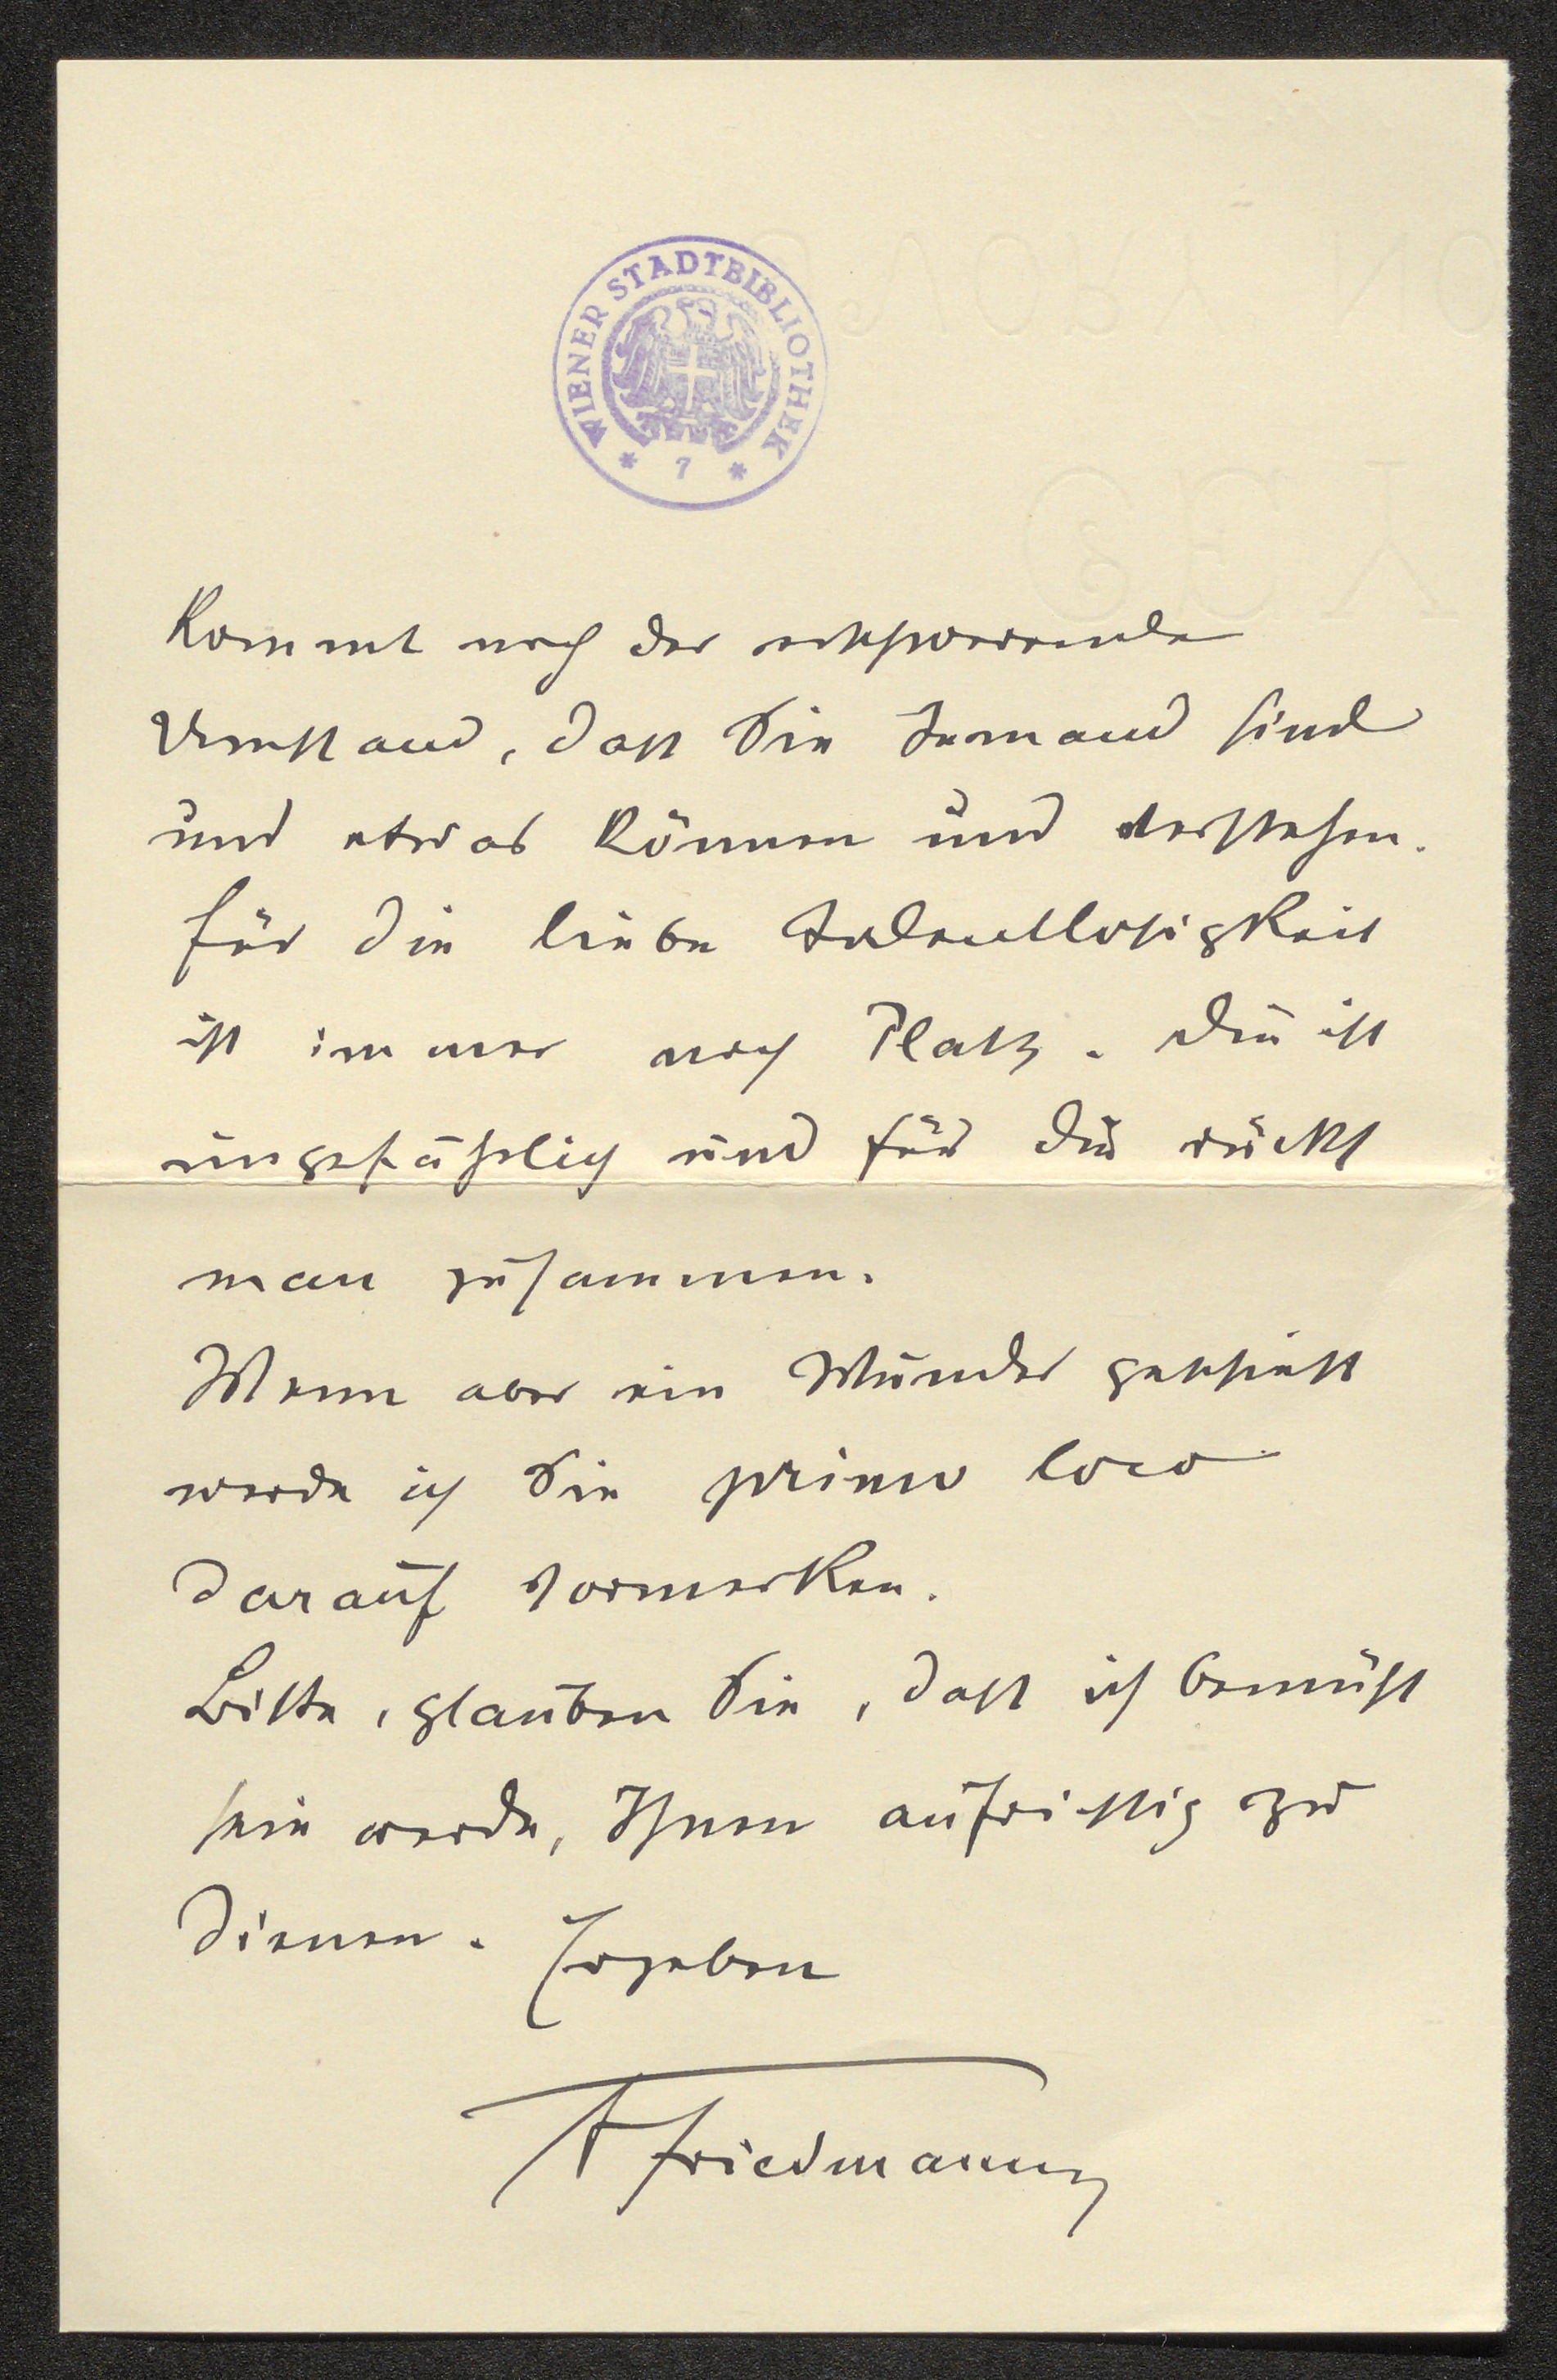 WIENER STADTBIBLIOTHEK
* 7 *
kommt noch der erschwerende
Umstand, dass Sie Jemand sind
und etwas können und verstehen.
für die liebe Talentlosigkeit
ist immer noch Platz. Die ist
ungefährlich und für die rückt
man zusammen.
Wenn aber ein Wunder geschieht
werde ich Sie primo loco
darauf vormerken.
Bitte, glauben Sie, dass ich bemüht
sein werde, Ihnen aufrichtig zu
dienen. Ergeben
A Friedmann